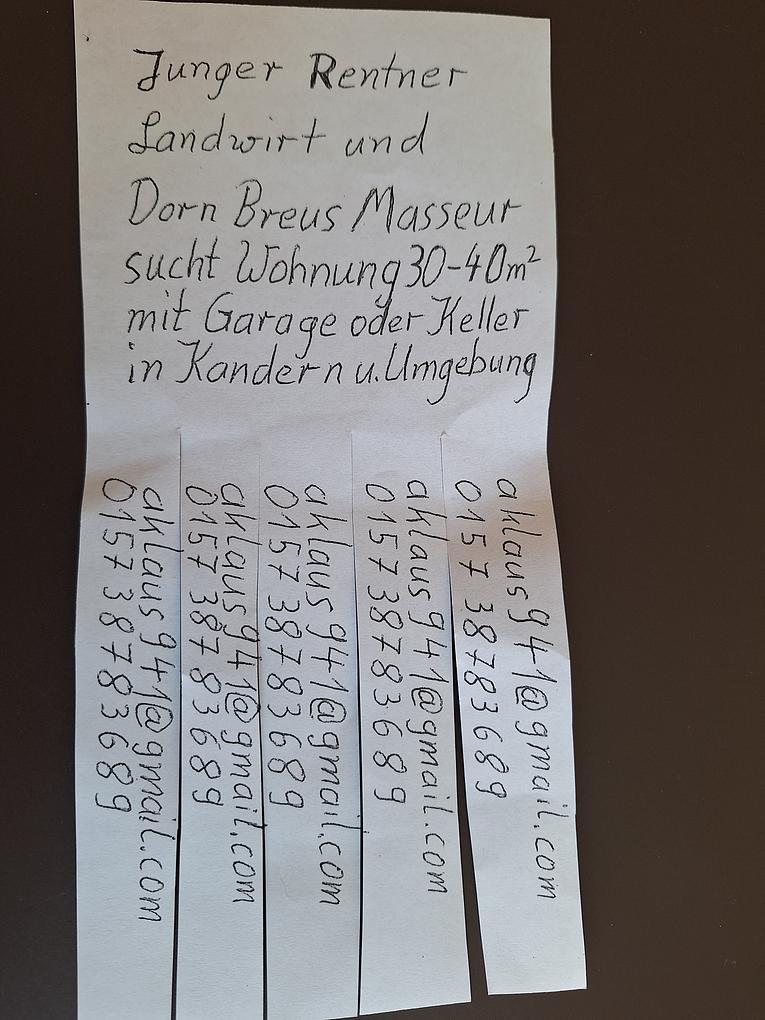 Junger Rentner
Landwirt und
Dorn Breus Masseur
sucht Wohnung 30-40m²
mit Garage oder Keller
in Kandern u. Umgebung
aklaus941@gmail.com
0157 38783689
aklaus941@gmail.com
0157 38783689
aklaus941@gmail.com
0157 38783689
aklaus941@gmail.com
0157 38783689
aklaus941@gmail.com
0157 38783689